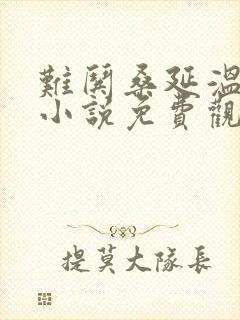 難鬨桑延溫
小說免費觀
提莫大隊長